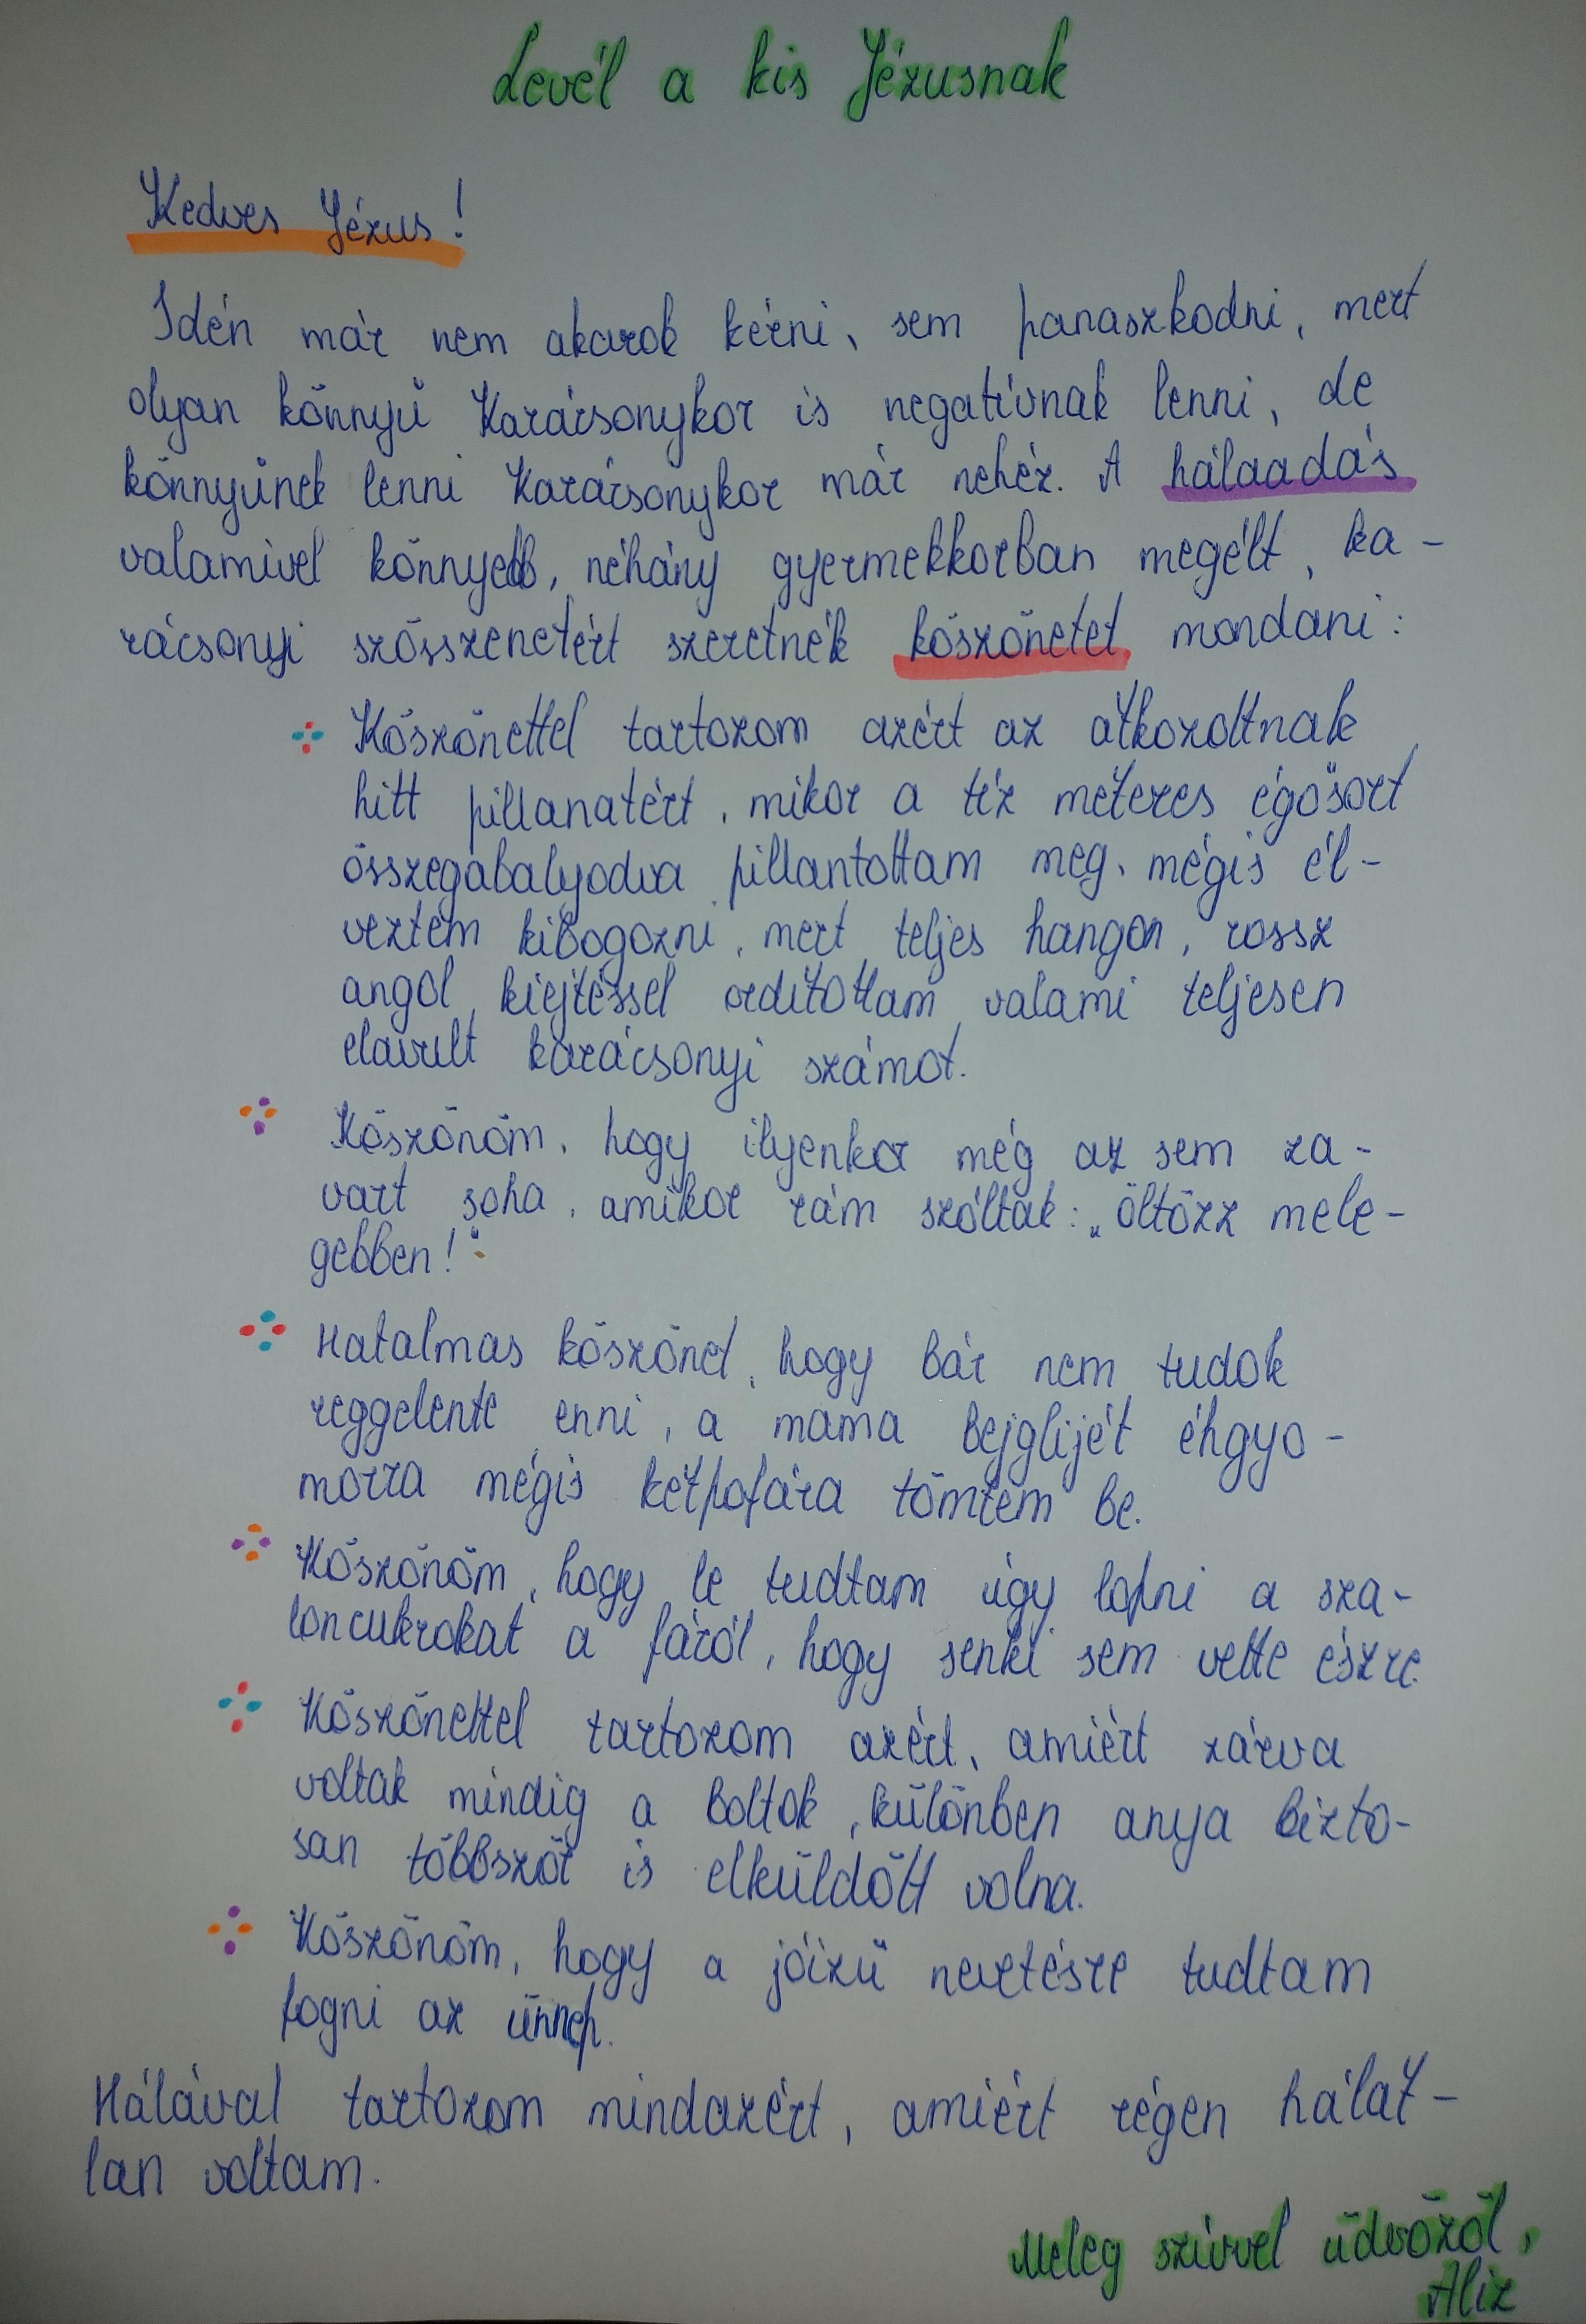 Levél a kis Jézusnak
Kedves Jézus!
Idén már nem akarok kérni, sem panaszkodni, mert
olyan könnyű Karácsonykor is negatívnak lenni, de
könnyűnek lenni Karácsonykor már nehéz. A hálaadás
valamivel könnyebb, néhány gyermekkorban megélt, ka-
rácsonyi szösszenetért szeretnék köszönetet mondani:
Köszönettel tartozom azért az átkozottnak
hitt pillanatért, mikor a tíz méteres égősort
összegabalyodva pillantottam meg, mégis él-
veztem kibogozni, mert teljes hangon, rossz
angol kiejtéssel ordítottam valami teljesen
elavult karácsonyi számot.
Köszönöm, hogy ilyenkor még az sem za-
vart soha, amikor rám szóltak: „öltözz mele-
gebben!"
Hatalmas köszönet, hogy bár nem tudok
reggelente enni, a mama bejglijét éhgyo-
morra mégis kétpofára tömtem be.
Köszönöm, hogy le tudtam úgy lopni a sza-
loncukrokat a fáról, hogy senki sem vette észre.
Köszönettel tartozom azért, amiért zárva
voltak mindig a boltok, különben anya bizto-
san többször is elküldött volna.
Köszönöm, hogy a jóízű nevetésre tudtam
fogni az ünnep.
Hálával tartozom mindazért, amiért régen hálát-
lan voltam.
Meleg szívvel üdvözöl,
Aliz